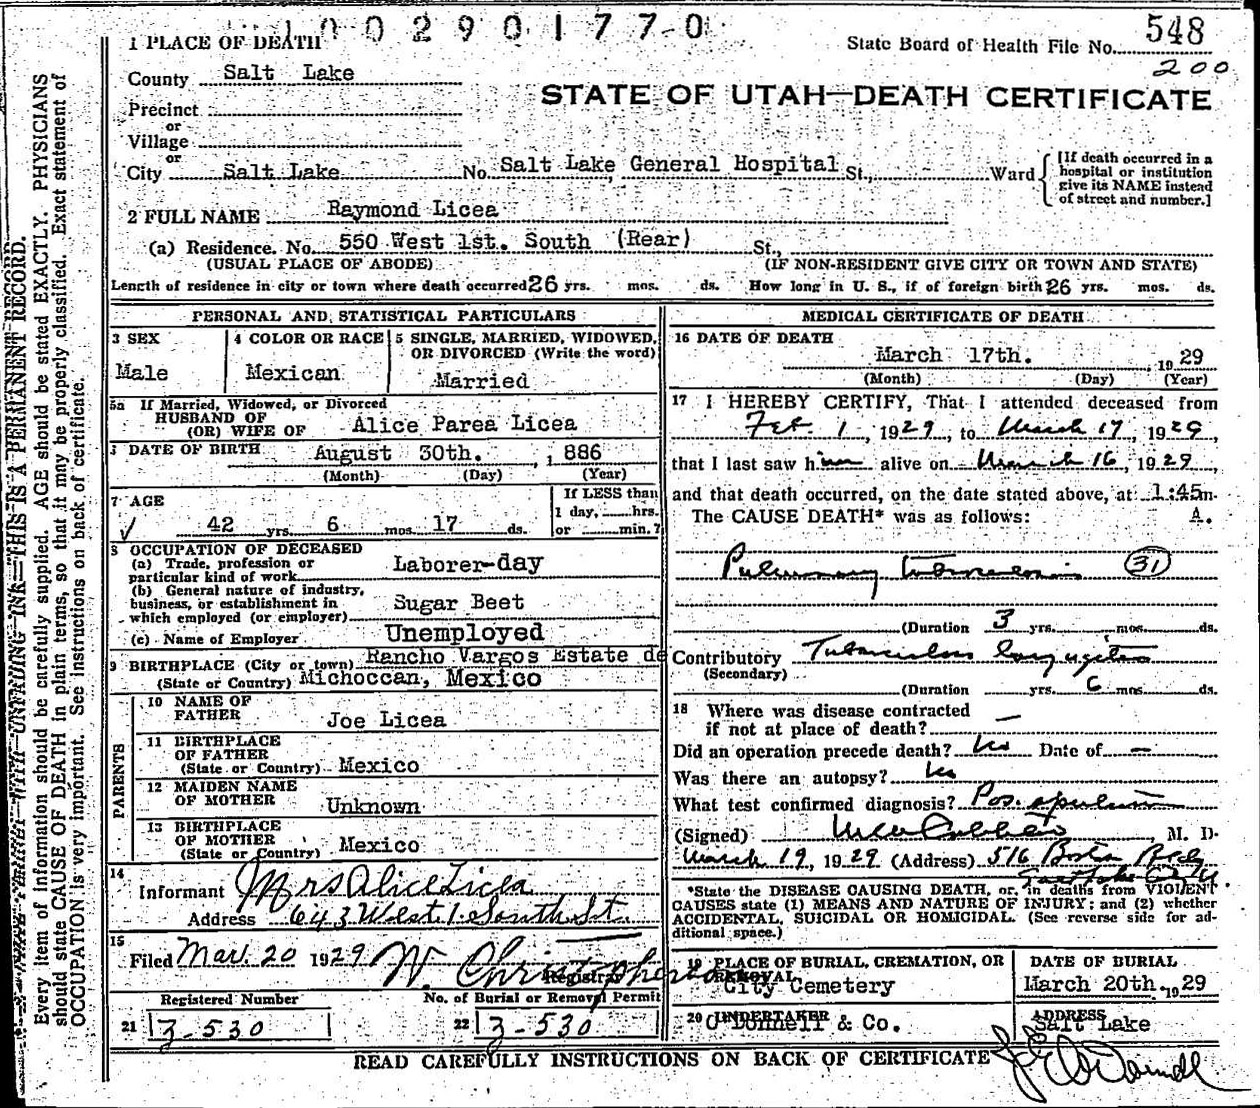 1 0 0 2 9 0 1 7 7 0
1 PLACE OF DEATH
State Board of Health File No. 548
200
County Salt Lake
STATE OF UTAH—DEATH CERTIFICATE
Precinct
or
Village
or
City Salt Lake No. Salt Lake General Hospital St., Ward
[If death occurred in a
hospital or institution
give its NAME instead
of street and number.]
2 FULL NAME Raymond Licea
(a) Residence. No. 550 West 1st. South (Rear) St.,
(USUAL PLACE OF ABODE) (IF NON-RESIDENT GIVE CITY OR TOWN AND STATE)
Length of residence in city or town where death occurred 26 yrs. mos. ds. How long in U. S., if of foreign birth 26 yrs. mos. ds.
PERSONAL AND STATISTICAL PARTICULARS
3 SEX
Male
4 COLOR OR RACE
Mexican
5 SINGLE, MARRIED, WIDOWED,
OR DIVORCED (Write the word)
Married
5a If Married, Widowed, or Divorced
HUSBAND OF
(OR) WIFE OF Alice Parea Licea
DATE OF BIRTH August 30th. , 1886
(Month) (Day) (Year)
7 AGE
√ 42 yrs. 6 mos. 17 ds.
If LESS than
1 day, hrs.
or min.?
8 OCCUPATION OF DECEASED
(a) Trade, profession or
particular kind of work Laborer-day
(b) General nature of industry,
business, or establishment in
which employed (or employer) Sugar Beet
(c) Name of Employer Unemployed
9 BIRTHPLACE (City or town) Rancho Vargos Estate de
(State or Country) Michoccan, Mexico
PARENTS
10 NAME OF
FATHER Joe Licea
11 BIRTHPLACE
OF FATHER
(State or Country) Mexico
12 MAIDEN NAME
OF MOTHER Unknown
13 BIRTHPLACE
OF MOTHER
(State or Country) Mexico
14
Informant Mrs Alice Licea
Address 643 West 1 South St.
15
Filed Mar. 20 1929 W. Christopherson
Registrar
Registered Number
21 3-530
No. of Burial or Removal Permit
22 3-530
MEDICAL CERTIFICATE OF DEATH
16 DATE OF DEATH
March 17th. , 1929
(Month) (Day) (Year)
17 I HEREBY CERTIFY, That I attended deceased from
Feb. 1, 1929, to March 17, 1929,
that I last saw him alive on March 16, 1929,
and that death occurred, on the date stated above, at 1:45m.
The CAUSE DEATH* was as follows: A.
Pulmonary tuberculosis 31
(Duration 3 yrs. mos. ds.
Contributory Tuberculous laryngitis
(Secondary)
(Duration yrs. 6 mos. ds.
18 Where was disease contracted
if not at place of death? —
Did an operation precede death? No Date of —
Was there an autopsy? No
What test confirmed diagnosis? Pos. sputum
(Signed) M. D.
March 19, 1929 (Address) 516 Boston Bldg
Salt Lake City
*State the DISEASE CAUSING DEATH, or, in deaths from VIOLENT
CAUSES state (1) MEANS AND NATURE OF INJURY: and (2) whether
ACCIDENTAL, SUICIDAL OR HOMICIDAL. (See reverse side for ad-
ditional space.)
19 PLACE OF BURIAL, CREMATION, OR
REMOVAL
City Cemetery
DATE OF BURIAL
March 20th. , 1929
20 UNDERTAKER
O'Donnell & Co.
ADDRESS
Salt Lake
READ CAREFULLY INSTRUCTIONS ON BACK OF CERTIFICATE
WRITE PLAINLY WITH UNFADING INK—THIS IS A PERMANENT RECORD.
Every item of information should be carefully supplied. AGE should be stated EXACTLY. PHYSICIANS
should state CAUSE OF DEATH in plain terms, so that it may be properly classified. Exact statement of
OCCUPATION is very important. See instructions on back of certificate.